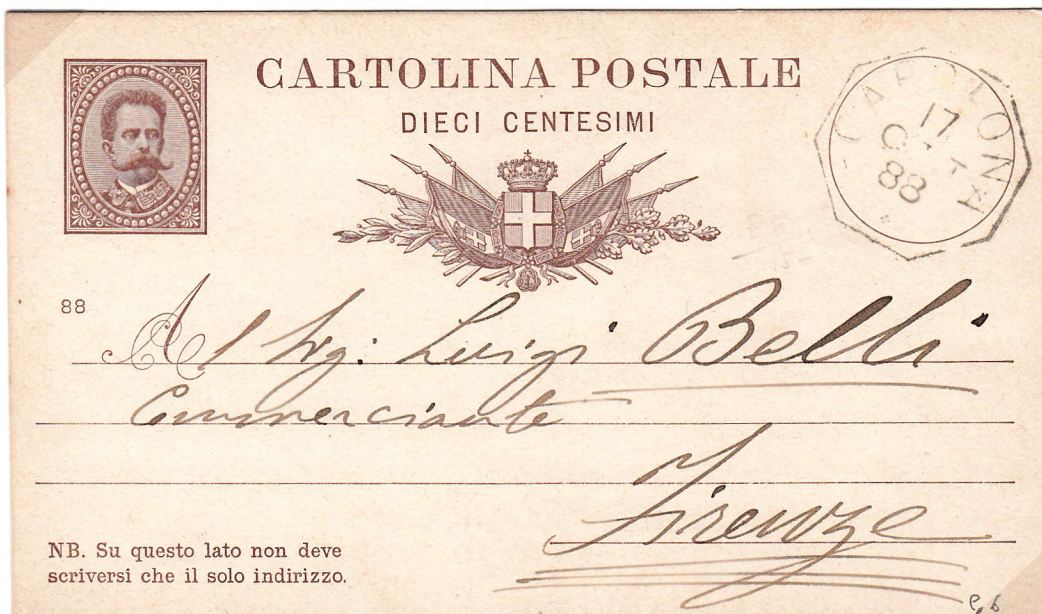 CARTOLINA POSTALE
DIECI CENTESIMI
CAPOLONA
17
OTT
88
88
Al Sig: Luigi Belli
Commerciante
Firenze
NB. Su questo lato non deve
scriversi che il solo indirizzo.